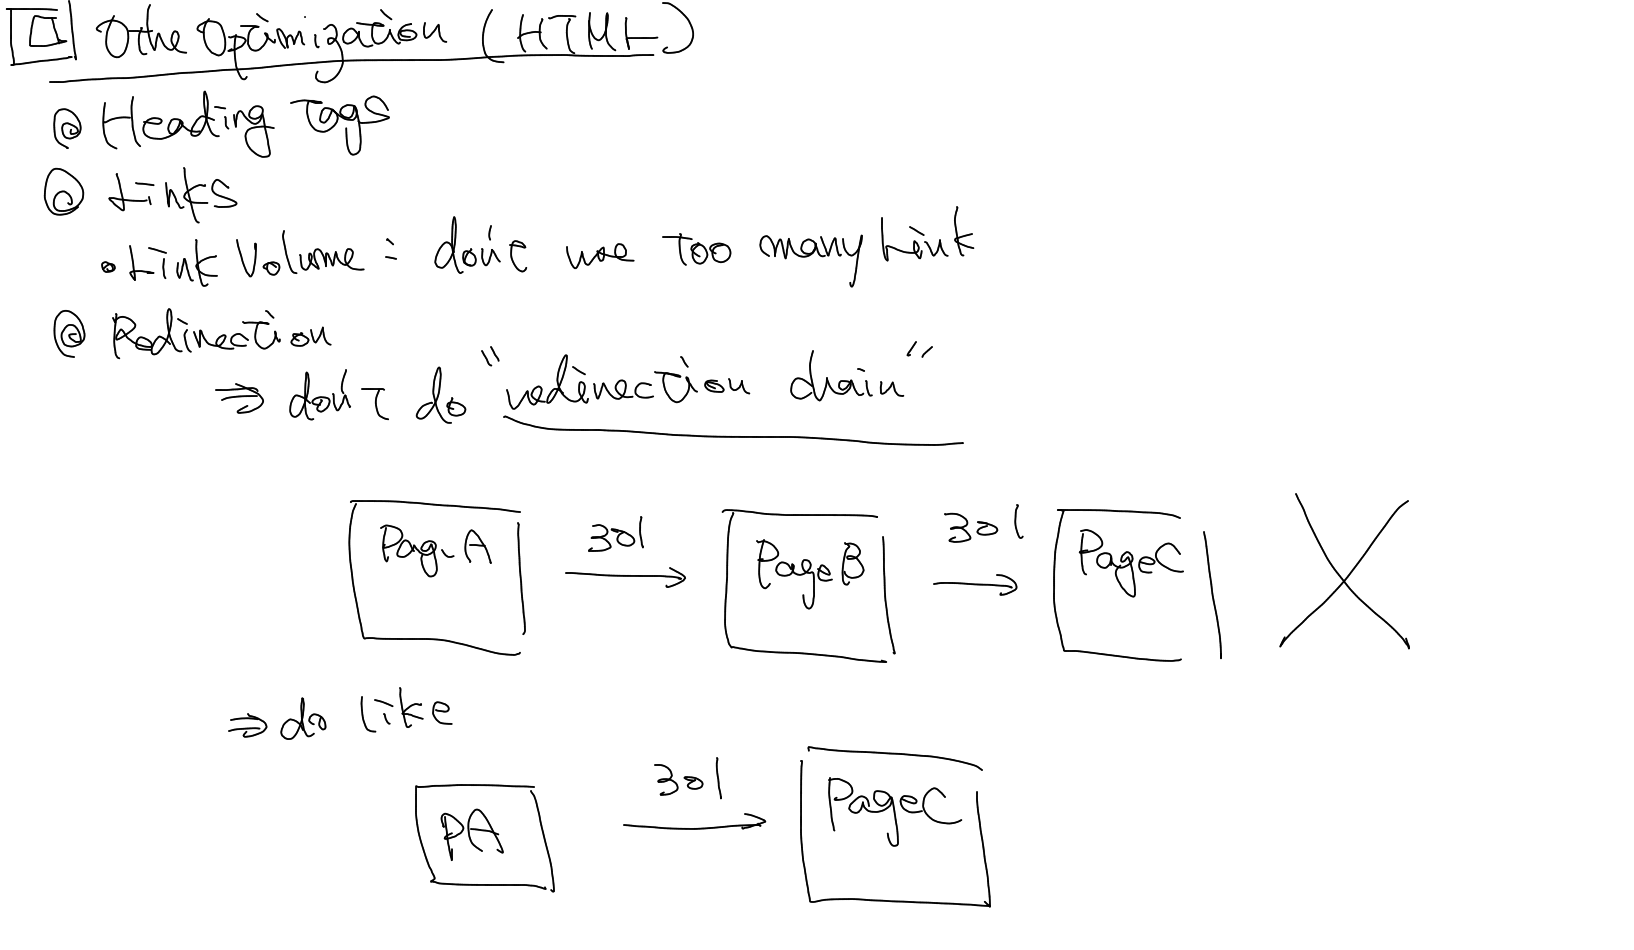 Othe Optimization (HTML)
@ Heading Tags
◎ Links
• Link Volume : don't use too many Link
@ Redirection
⇒ don't do "redirection chain"
Page A 301 Page B 301 Page C
⇒ do like
PA 301 Page C